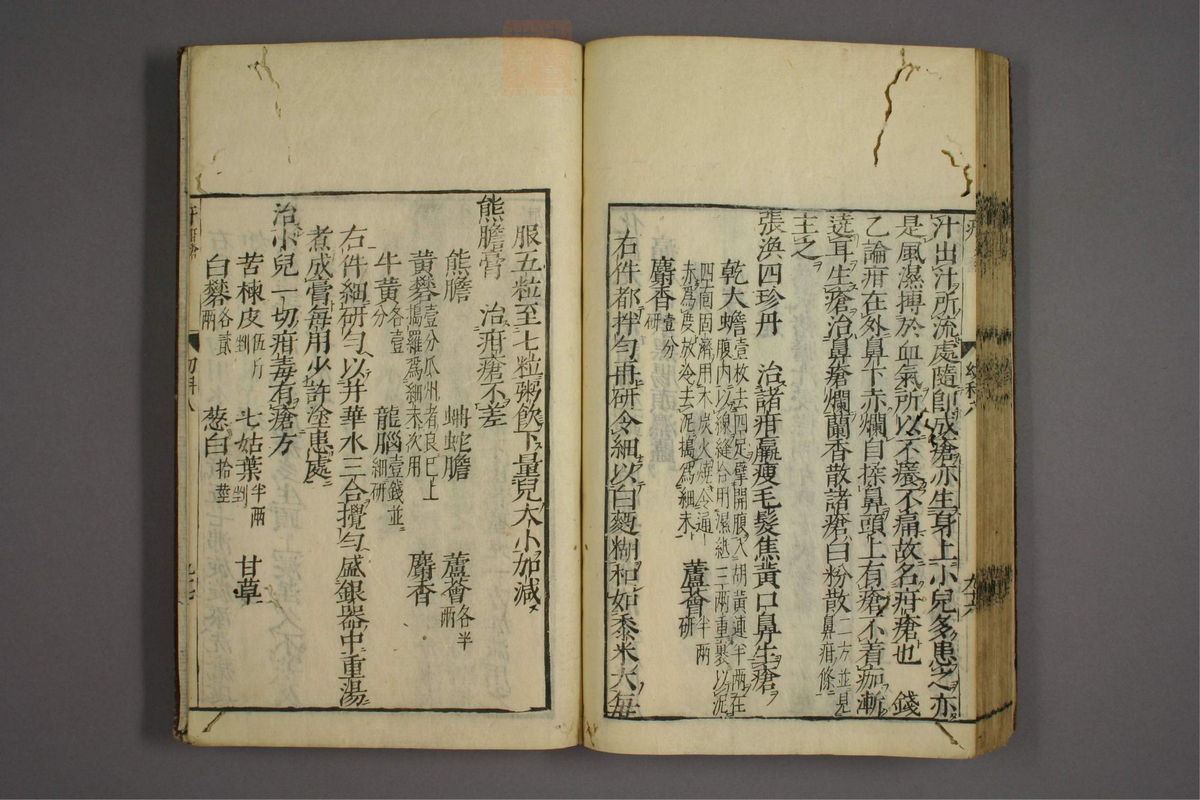 汁出汁所流處隨即成瘡亦生身上小兒多患之亦
是風濕搏於血氣所以不癢不痛故名疳瘡也　錢
乙論疳在外鼻下赤爛自揉鼻頭上有瘡不着痂漸
遶耳生瘡治鼻瘡爛蘭香散諸瘡白粉散二方並見鼻疳條
主之
張渙四珍丹　治諸疳羸瘦毛髮焦黃口鼻生瘡
乾大蟾壹枚去四足擘開腹入胡黃連半兩在
腹內以線縫合用濕紙三兩重裹以泥
四面固濟用木炭火燒令通
赤為度放冷去泥搗為細末　蘆薈半兩研
麝香壹分研
右件都拌勻再研令細以白麪糊和如黍米大每
疳
幼科八
九十六
服五粒至七粒粥飲下量兒大小加減
熊膽膏　治疳瘡不差
熊膽　蚺蛇膽　蘆薈各半兩
黃礬壹分瓜州者良已上搗羅為細末次用　麝香
牛黃各壹分　龍腦壹錢並細研
右件細研勻以井華水三合攪勻盛銀器中重湯
煮成膏每用少許塗患處
治小兒一切疳毒有瘡方
苦楝皮伍斤剉　七姑葉半兩剉　甘草
白礬各貳兩　葱白拾莖
幼科八
九十七